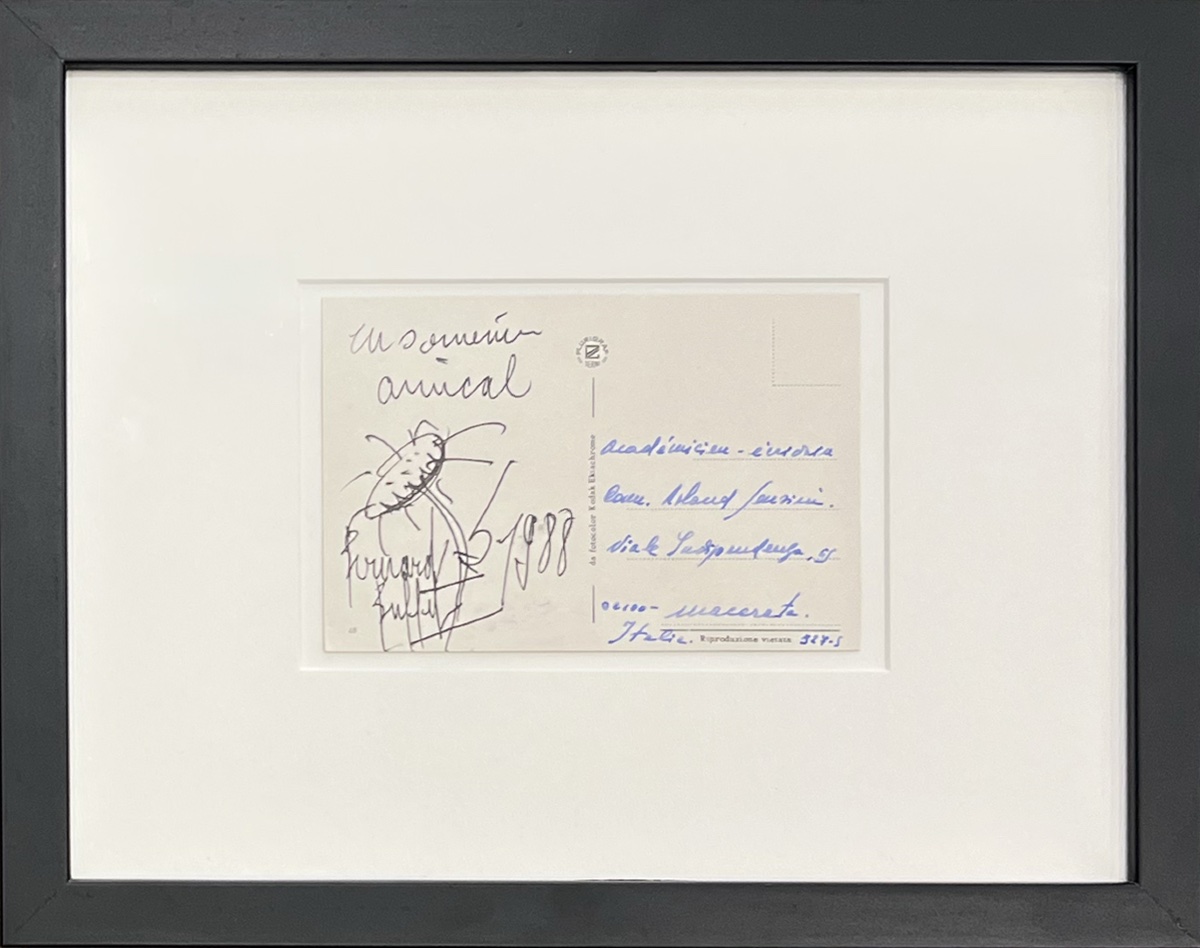 en souvenir
amical
Bernard
Buffet
1988
da fotocolor Kodak Ektachrome
Académicien -
Com. Roland Sensini.
Viale Indipendenza,
macerata.
Italia. Riproduzione vietata 327-S